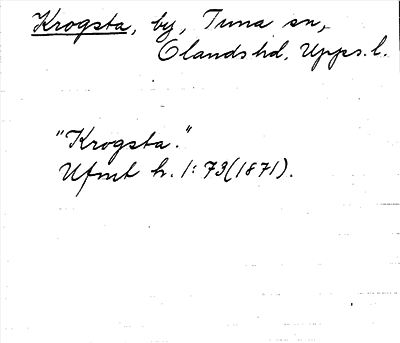 Krogsta, by, Tuna sn,
Olands hd, Upps. l.
"Krogsta."
Ufmt h. 1: 73 (1871).